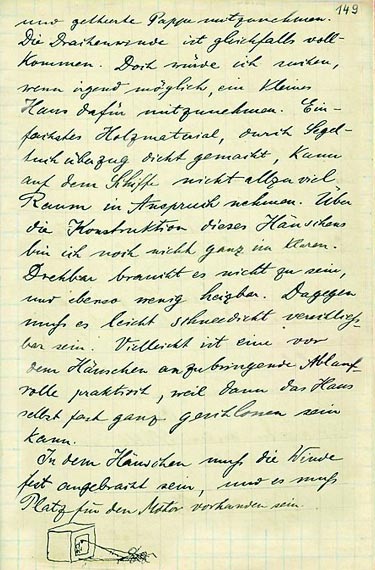 149
und geteerte Pappe mitzunehmen.
Die Drachenwinde ist gleichfalls voll-
kommen. Doch würde ich suchen,
wenn irgend möglich, ein kleines
Haus dafür mitzunehmen. Ein-
fachstes Holzmaterial, durch Segel-
tuchüberzug dicht gemacht, kann
auf dem Schiffe nicht allzuviel
Raum in Anspruch nehmen. Über
die Konstruktion dieses Häuschens
bin ich noch nicht ganz im klaren.
Drehbar braucht es nicht zu sein,
und ebenso wenig heizbar. Dagegen
muß es leicht schneedicht verschließ-
bar sein. Vielleicht ist eine vor
dem Häuschen anzubringende Ablauf-
rolle praktisch, weil dann das Haus
selbst fast ganz geschlossen sein
kann.
In dem Häuschen muß die Winde
fest angebracht sein, und es muß
Platz für den Motor vorhanden sein.